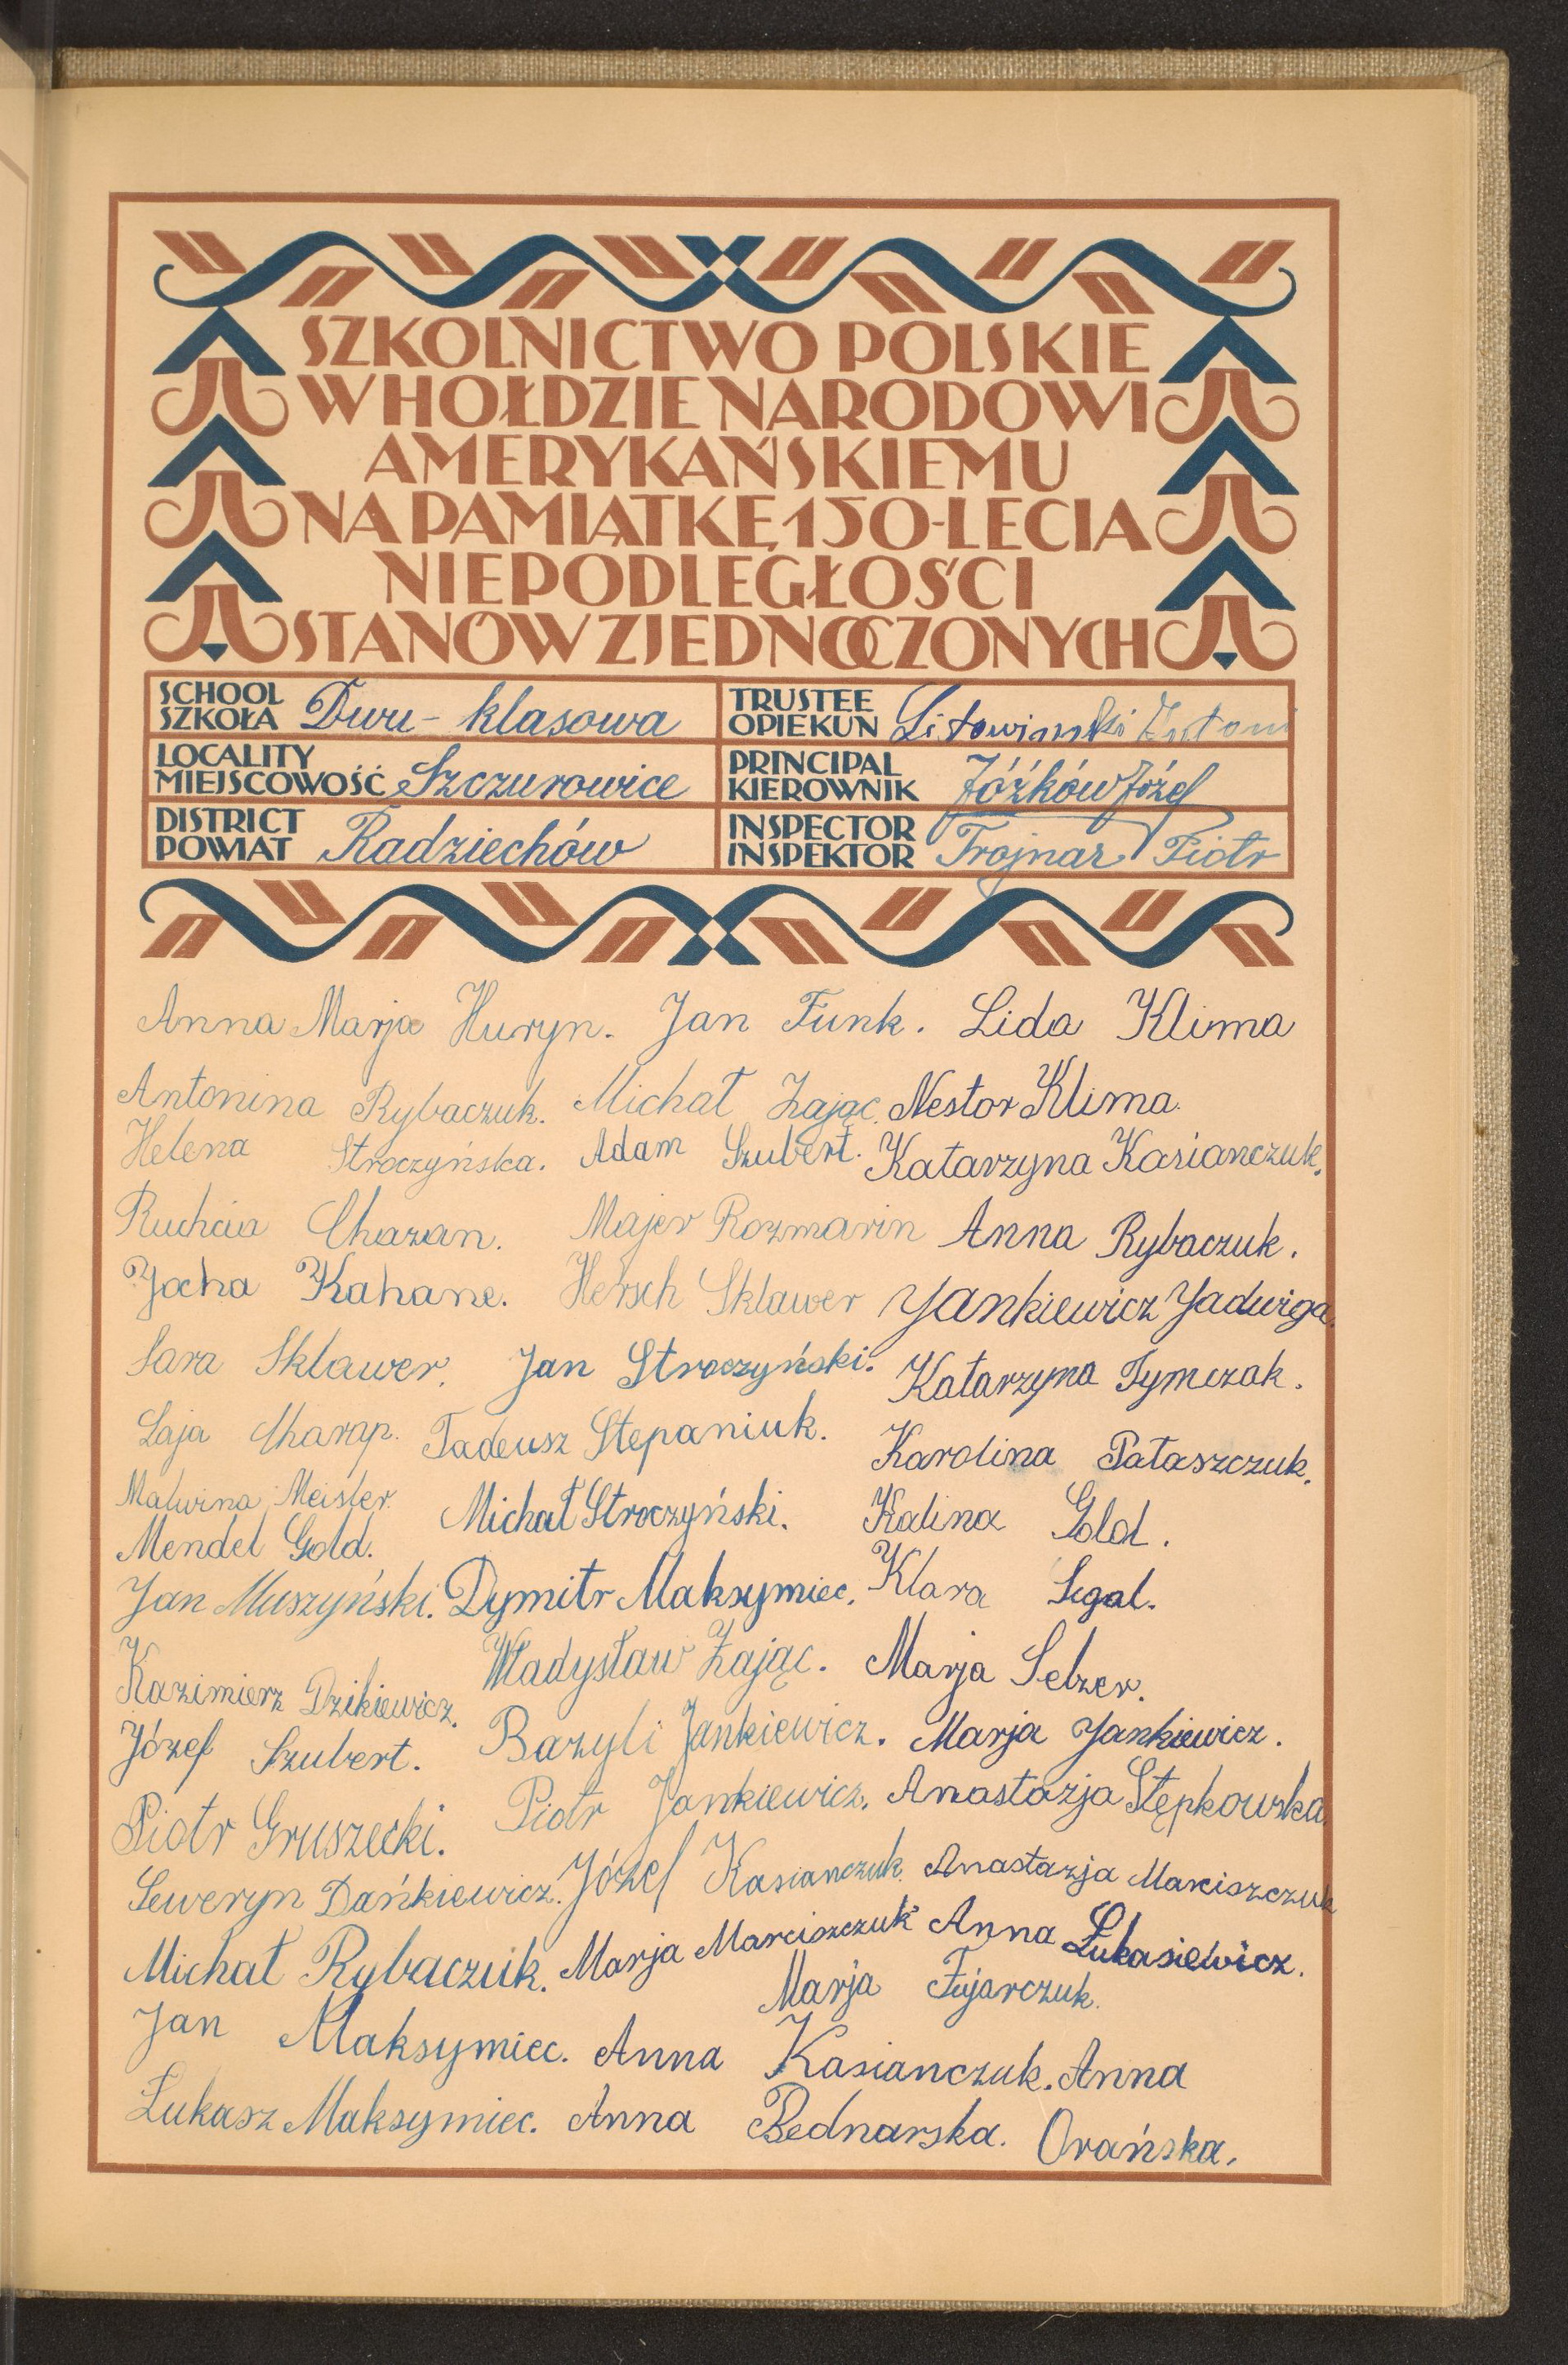 SZKOLNICTWO POLSKIE
W HOŁDZIE NARODOWI
AMERYKAŃSKIEMU
NA PAMIĄTKĘ 150-LECIA
NIEPODLEGŁOŚCI
STANÓW ZJEDNOCZONYCH
SCHOOL
SZKOŁA Dwu-klasowa
TRUSTEE
OPIEKUN Litowiński Antoni
LOCALITY
MIEJSCOWOŚĆ Szczurowice
PRINCIPAL
KIEROWNIK Jóźków Józef
DISTRICT
POWIAT Radziechów
INSPECTOR
INSPEKTOR Trojnar Piotr
Anna Marja Huryn. Jan Funk. Lida Klima
Antonina Rybaczuk. Michał Zając. Nestor Klima.
Helena Stroczyńska. Adam Szubert. Katarzyna Kasianczuk.
Ruchcia Chazan. Majer Rozmarin Anna Rybaczuk.
Jocha Kahane. Hersch Sklawer Jankiewicz Jadwiga.
Sara Sklawer. Jan Stroczyński. Katarzyna Tymczak.
Laja Charap. Tadeusz Stepaniuk. Karolina Pataszczuk.
Malwina Meisler. Michał Stroczyński. Kalina Gold.
Mendel Gold.
Jan Muszyński. Dymitr Maksymiec. Klara Segal.
Kazimierz Dzikiewicz. Władysław Zając. Marja Selzer.
Józef Szubert. Bazyli Jankiewicz. Marja Jankiewicz.
Piotr Gruszecki. Piotr Jankiewicz. Anastazja Stępkowska.
Seweryn Dańkiewicz. Józef Kasianczuk. Anastazja Marciszczuk
Michał Rybaczuk. Marja Marciszczuk Anna Łukasiewicz.
Marja Fujarczuk.
Jan Maksymiec. Anna Kasianczuk. Anna
Łukasz Maksymiec. Anna Bednarska. Orańska.